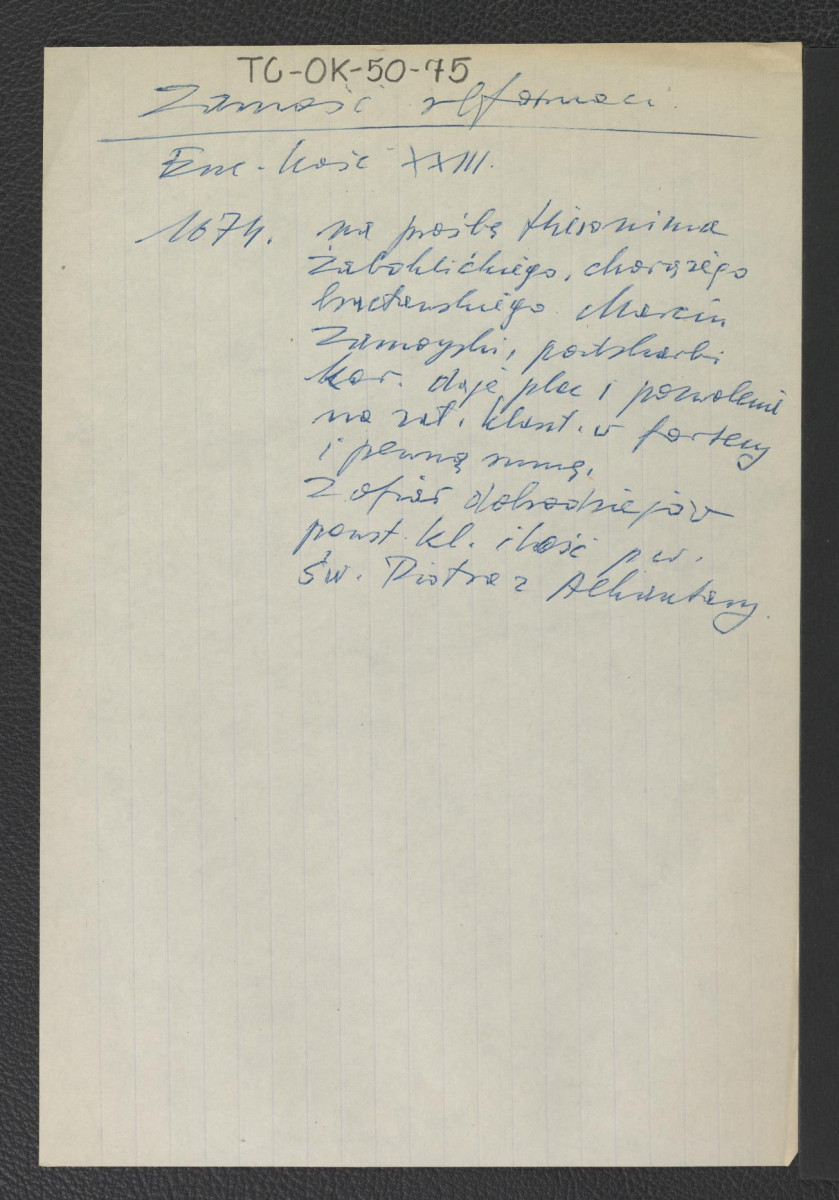 TC-OK-50-75
Zamość reformaci.
Enc. Kość XXIII.
1674. na prośbę Hieronima
Żaboklickiego, chorążego
bracławskiego Marcin
Zamoyski, podskarbi
kor. daje plac i pozwolenie
na zał. klaszt. w fortecy
i pewną sumę.
Z ofiar dobrodziejów
powst. kl. i kość p.w.
Św. Piotra z Alkantary.